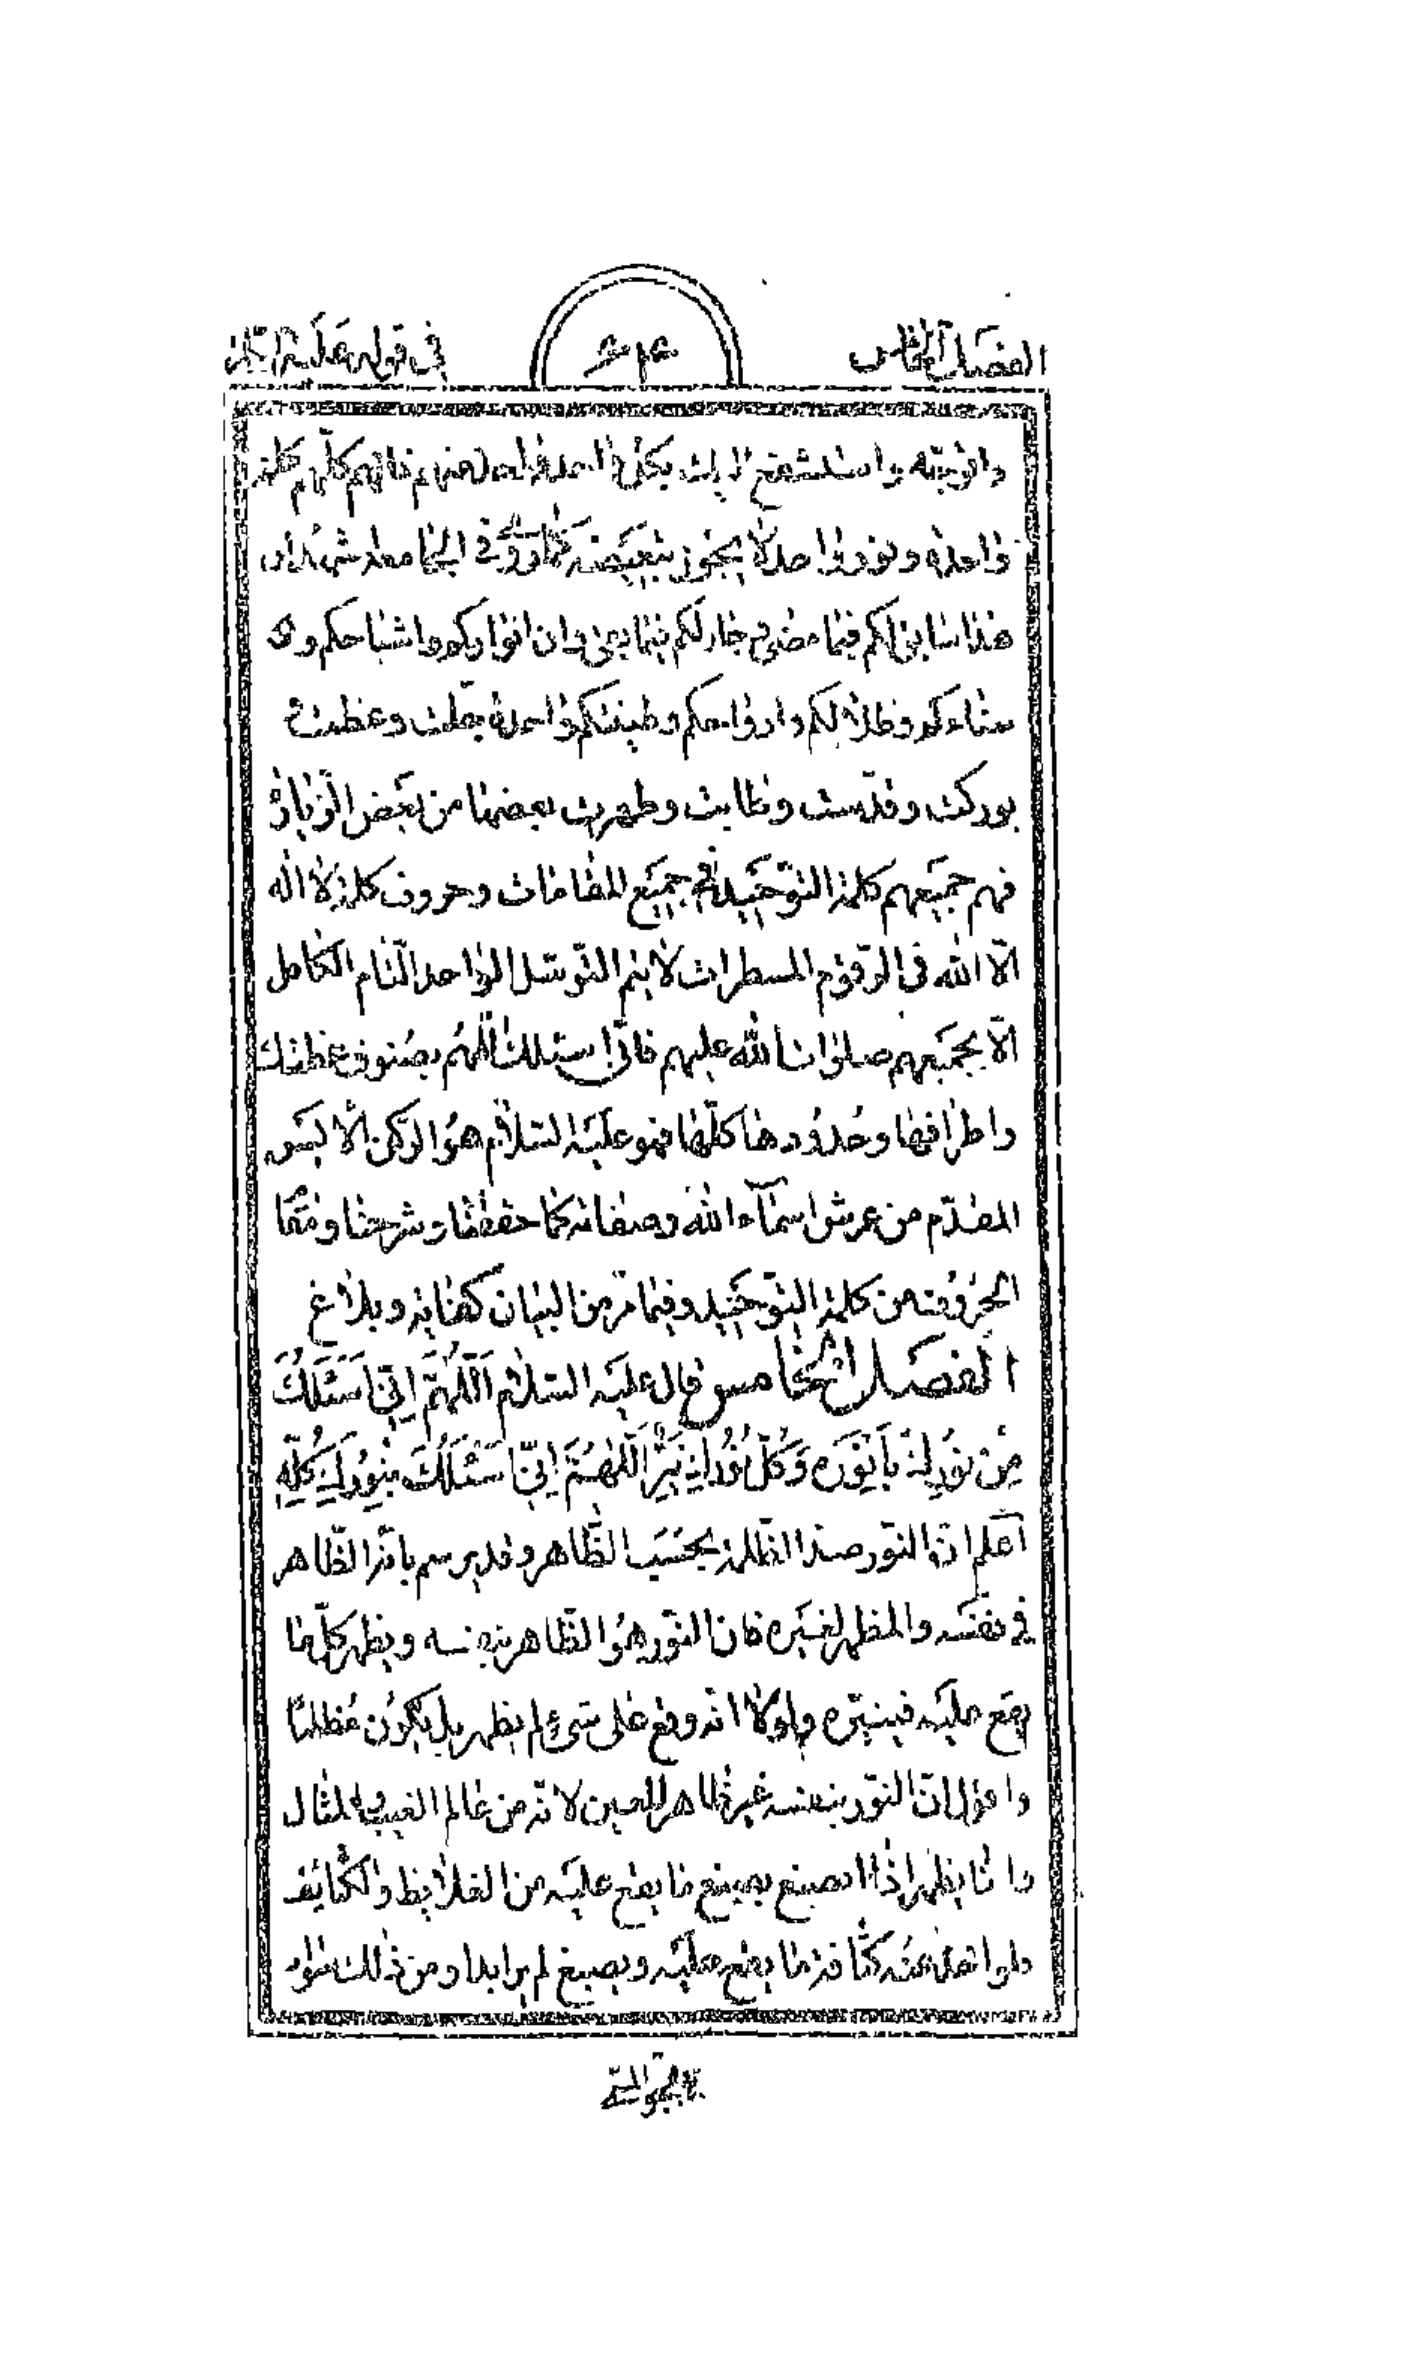 الفصل الخامس
في قوله عليه السلام
واتوجّه واستشفع اليك بكل واحد واحد منهم فانهم كلّهم كلمة
واحدة ونور واحد لا يجوز تبعيضه كما ورد في الجامعة شهد ان
هذا سابق لكم فيما مضى وجار لكم فيما بقى وان انواركم واشباحكم و
سناءكم وظلالكم وارواحكم وطينتكم واحدة جلّت وعظمت و
بوركت وقدّست وطابت وطهرت بعضها من بعض الزيارة
فهم جميعهم كلمة التوحيد في جميع المقامات وحروف كلمة لا اله
الّا الله في الرقوم المسطرات لا يتم التوسّل الواحد التام الكامل
الّا بجميعهم صلوات الله عليهم فانّى اسئلك اللّهم بصنوف عظمتك
واطرافها وحدودها كلّها فهو عليه السلام هو الركن الايسر
المقدّم من عرش اسماء الله وصفاته كما حققنا وشرحنا ومقا
الحروف من كلمة التوحيد وفيما مرّ من البيان كفاية وبلاغ
الفصل الخامس قال عليه السلام اَللّهُمَّ اِنّى اَسْئَلُكَ
مِنْ نُورِكَ بِاَنْوَرِهِ وَكُلُّ نُورِكَ نَيِّرٌ اَللّهُمَّ اِنّى اَسْئَلُكَ بِنُورِكَ كُلِّهِ
اعلم انّ النّور ضدّ الظلمة بحسب الظّاهر وقد يرسم بانّه الظّاهر
في نفسه والمظهر لغيره فان النّور هو الظّاهر بنفسه ويظهر كلّ ما
يقع عليه فينيره ولولا انّه وقع على شىء لم يظهر بل يكون مظلمًا
واقول انّ النّور بنفسه غير ظاهر للعين لانّه من عالم الغيب والمثال
وانما يظهر اذا انصبغ بصبغ ما يقع عليه من الغلايظ والكثايف
ولو كثافة ما يقع عليه ويصبغ لم ير ابدا ومن ذلك